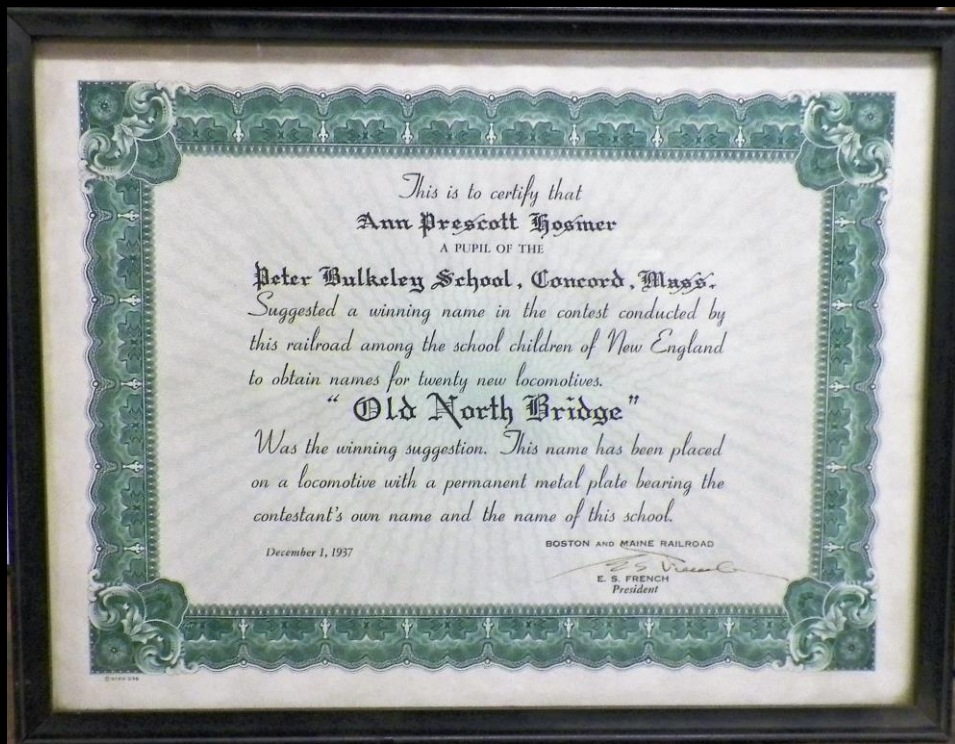 This is to certify that
Ann Prescott Hosmer
A PUPIL OF THE
Peter Bulkeley School, Concord, Mass.
Suggested a winning name in the contest conducted by
this railroad among the school children of New England
to obtain names for twenty new locomotives.
"Old North Bridge"
Was the winning suggestion. This name has been placed
on a locomotive with a permanent metal plate bearing the
contestant's own name and the name of this school.
December 1, 1937
BOSTON AND MAINE RAILROAD
E. S. French
E. S. FRENCH
President